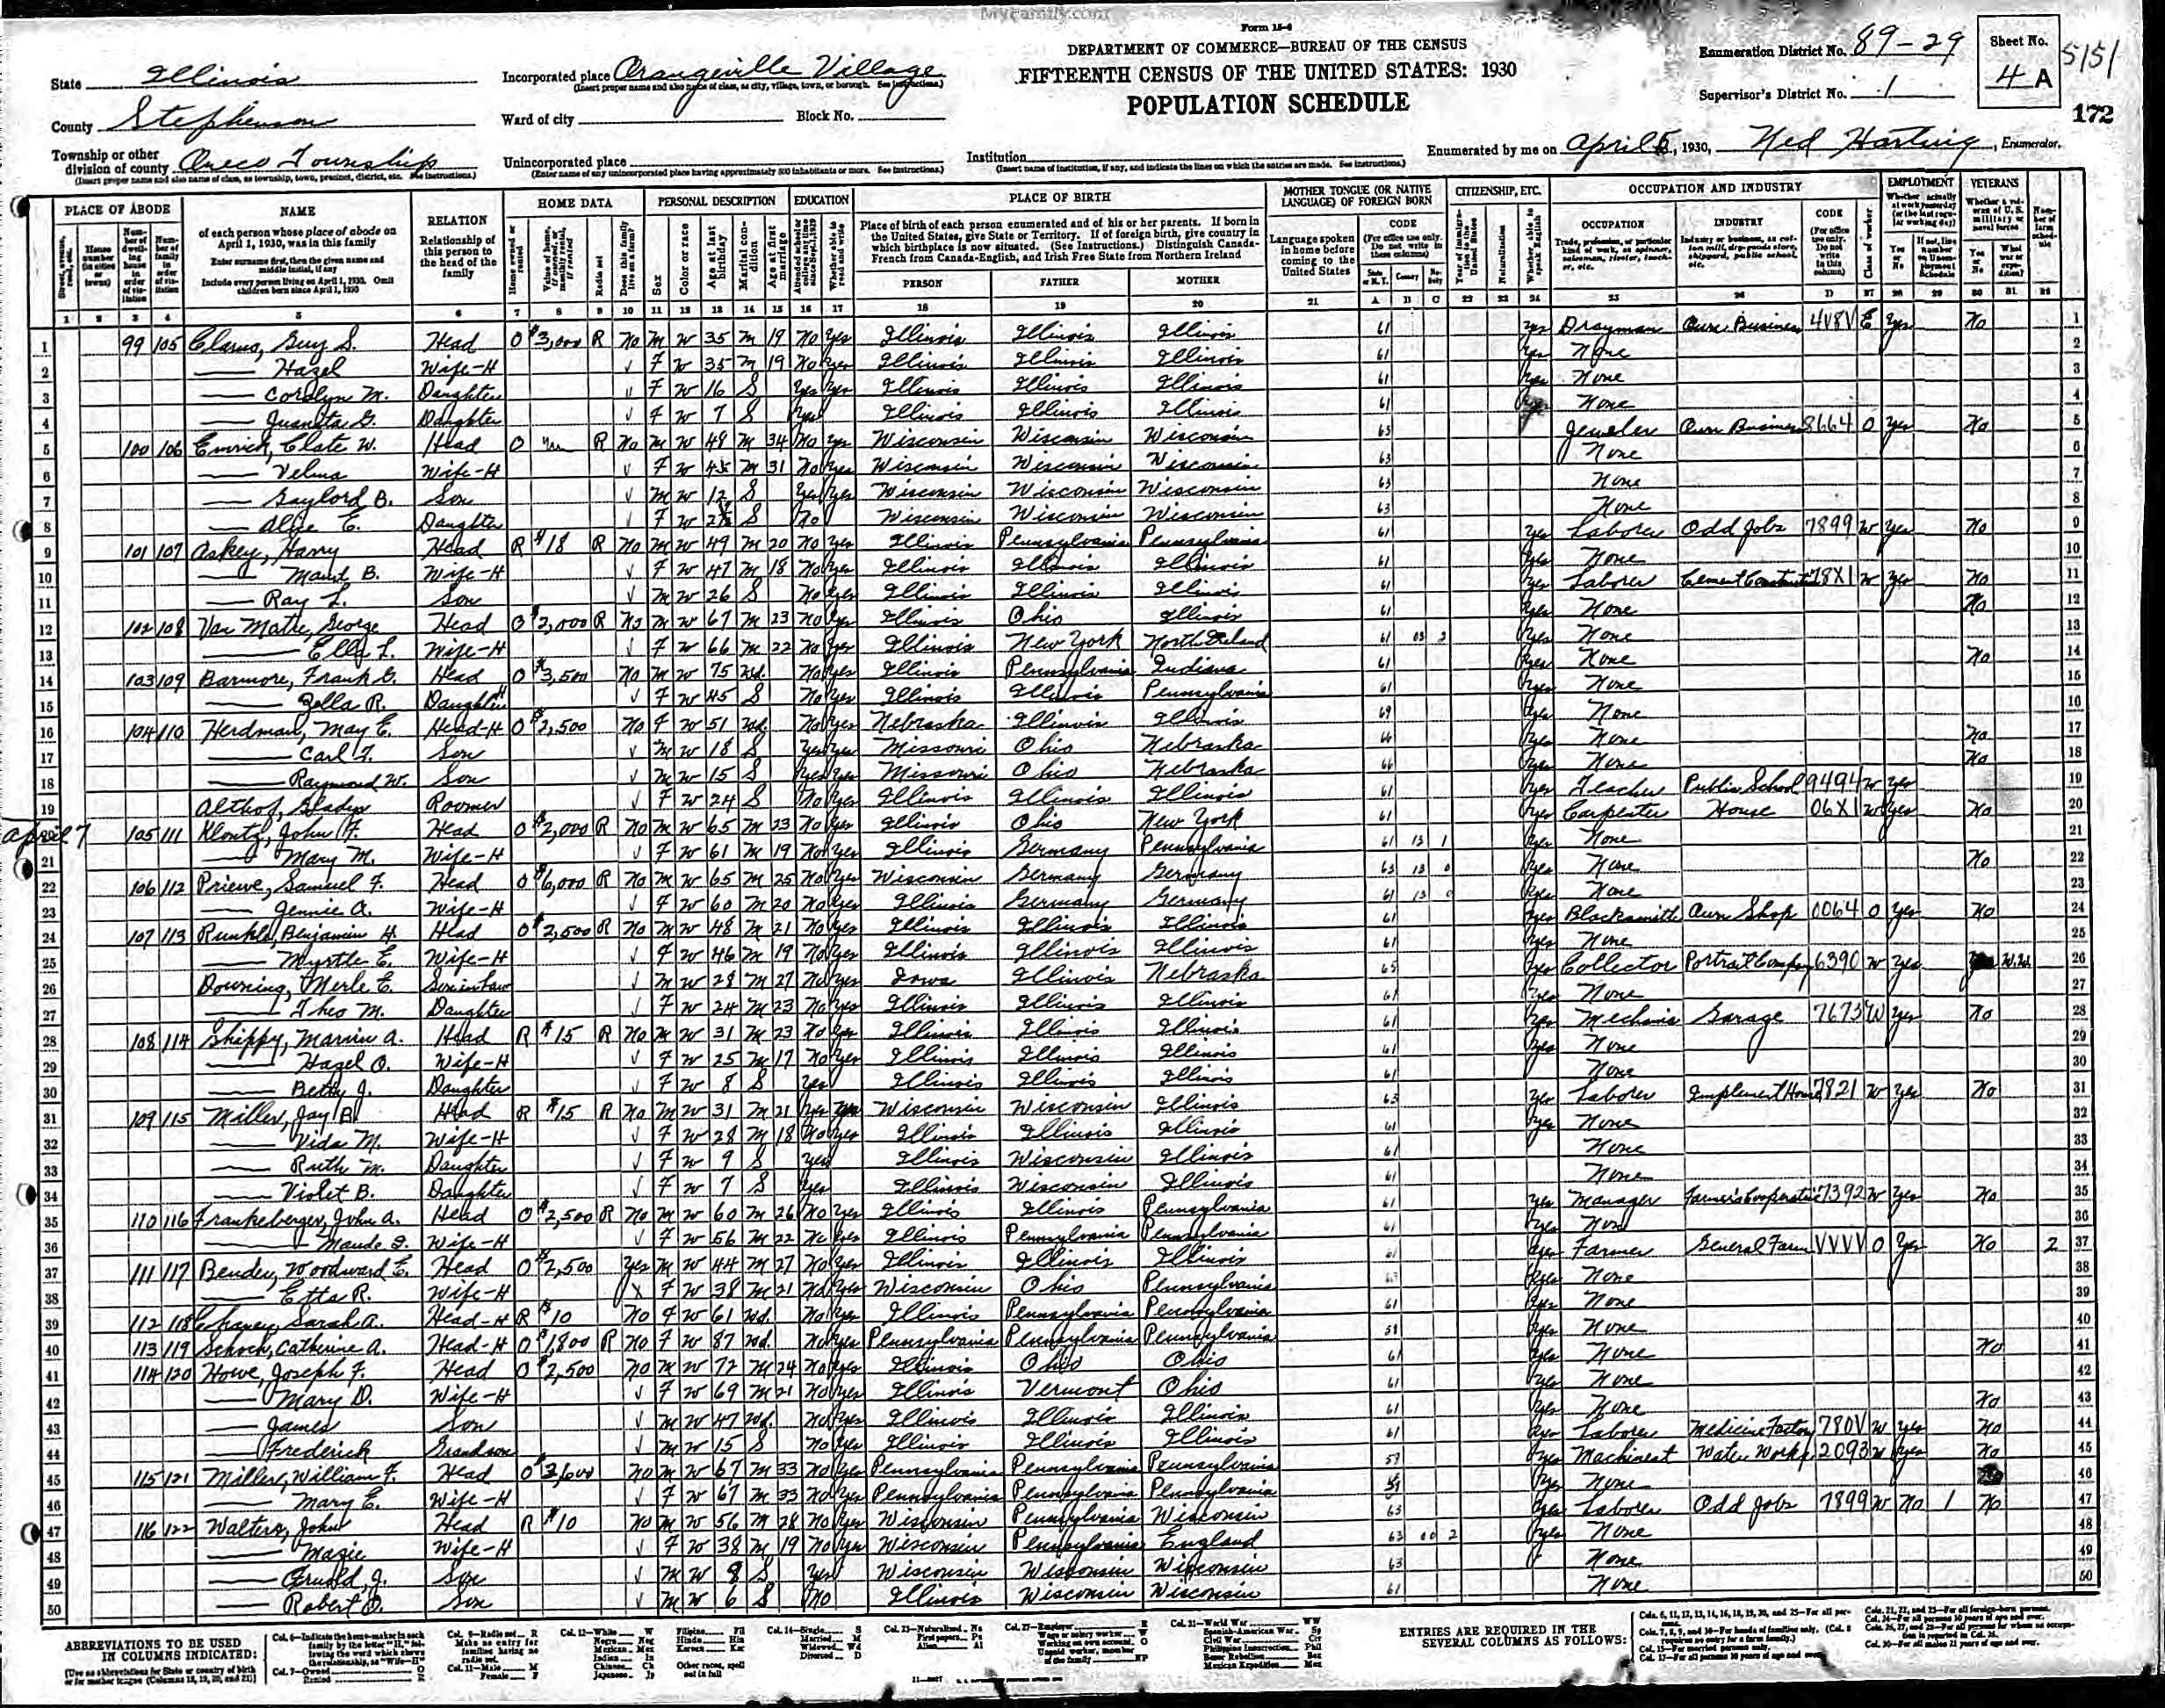 MyFamily.com
Form 15-6
DEPARTMENT OF COMMERCE—BUREAU OF THE CENSUS
FIFTEENTH CENSUS OF THE UNITED STATES: 1930
POPULATION SCHEDULE
State Illinois
County Stephenson
Township or other division of county Oneco Township
Incorporated place Orangeville Village
Ward of city Block No.
Unincorporated place
Institution
Enumeration District No. 89-29
Supervisor's District No. 1
Sheet No. 4 A
5151
172
Enumerated by me on April 5, 1930, Ned Harting, Enumerator.
PLACE OF ABODE NAME RELATION HOME DATA PERSONAL DESCRIPTION EDUCATION PLACE OF BIRTH MOTHER TONGUE (OR NATIVE LANGUAGE) OF FOREIGN BORN CITIZENSHIP, ETC. OCCUPATION AND INDUSTRY EMPLOYMENT VETERANS
PERSON FATHER MOTHER
1 99 105 Clarno, Guy S. Head O $3,000 R No M W 35 M 19 No Yes Illinois Illinois Illinois 61 Yes Drayman Own Business Yes No
2 Hazel Wife-H F W 35 M 19 No Yes Illinois Illinois Illinois 61 Yes None
3 Carolyn M. Daughter F W 16 S Yes Yes Illinois Illinois Illinois 61 Yes None
4 Juanita G. Daughter F W 7 S Yes Illinois Illinois Illinois 61 None
5 100 106 Emrick, Clate W. Head O R No M W 48 M 34 No Yes Wisconsin Wisconsin Wisconsin 63 Jeweler Own Business 8664 O Yes No
6 Velma Wife-H F W 45 M 31 No Yes Wisconsin Wisconsin Wisconsin 63 None
7 Gaylord B. Son M W 12 S Yes Yes Wisconsin Wisconsin Wisconsin 63 None
8 E. Daughter F W S No Wisconsin Wisconsin Wisconsin 63 None
9 101 107 Askey, Harry Head R $18 R No M W 49 M 20 No Yes Illinois Pennsylvania Pennsylvania 61 Yes Laborer Odd Jobs 7899 W Yes No
10 Maud B. Wife-H F W 47 M 18 No Yes Illinois Illinois Illinois 61 Yes None
11 Ray L. Son M W 26 S No Yes Illinois Illinois Illinois 61 Yes Laborer Cement Construction 78X1 W Yes No
12 102 108 Van Matre, George Head O $2,000 R No M W 67 M 23 No Yes Illinois Ohio Illinois 61 Yes None No
13 Ella L. Wife-H F W 66 M 22 No Yes Illinois New York North Ireland 61 03 2 Yes None
14 103 109 Barmore, Frank G. Head O $3,500 No M W 75 Wd. No Yes Illinois Pennsylvania Indiana 61 Yes None No
15 Zella R. Daughter F W 45 S No Yes Illinois Illinois Pennsylvania 61 Yes None
16 104 110 Herdman, May E. Head-H O $2,500 No F W 51 Wd. No Yes Nebraska Illinois Illinois 69 Yes None
17 Carl F. Son M W 18 S Yes Yes Missouri Ohio Nebraska 66 Yes None No
18 Raymond W. Son M W 15 S Yes Yes Missouri Ohio Nebraska 66 Yes None No
19 Althof, Gladys Roomer F W 24 S No Yes Illinois Illinois Illinois 61 Yes Teacher Public School 9494 W Yes
April 7
20 105 111 Klontz, John F. Head O $2,000 R No M W 65 M 23 No Yes Illinois Ohio New York 61 Yes Carpenter House 06X1 W Yes No
21 Mary M. Wife-H F W 61 M 19 No Yes Illinois Germany Pennsylvania 61 13 1 Yes None
22 106 112 Priewe, Samuel F. Head O $6,000 R No M W 65 M 25 No Yes Wisconsin Germany Germany 63 13 0 Yes None No
23 Jennie A. Wife-H F W 60 M 20 No Yes Illinois Germany Germany 61 13 0 Yes None
24 107 113 Runkle, Benjamin H. Head O $3,500 R No M W 48 M 21 No Yes Illinois Illinois Illinois 61 Yes Blacksmith Own Shop 0064 O Yes No
25 Myrtle E. Wife-H F W 46 M 19 No Yes Illinois Illinois Illinois 61 Yes None
26 Downing, Merle E. Son in law M W 28 M 27 No Yes Iowa Illinois Nebraska 65 Yes Collector Portrait Company 6390 W Yes Yes W.W.
27 Theo M. Daughter F W 24 M 23 No Yes Illinois Illinois Illinois 61 Yes None
28 108 114 Shippy, Marvin A. Head R $15 R No M W 31 M 23 No Yes Illinois Illinois Illinois 61 Yes Mechanic Garage 7673 W Yes No
29 Hazel O. Wife-H F W 25 M 17 No Yes Illinois Illinois Illinois 61 Yes None
30 Betty J. Daughter F W 8 S Yes Illinois Illinois Illinois 61 None
31 109 115 Miller, Jay B. Head R $15 R No M W 31 M 21 Yes Wisconsin Wisconsin Illinois 63 Yes Laborer Implement House 7821 W Yes No
32 Vida M. Wife-H F W 28 M 18 No Yes Illinois Illinois Illinois 61 Yes None
33 Ruth M. Daughter F W 9 S Yes Illinois Wisconsin Illinois 61 None
34 Violet B. Daughter F W 7 S Yes Illinois Wisconsin Illinois 61 None
35 110 116 Frankeberger, John A. Head O $2,500 R No M W 60 M 26 No Yes Illinois Illinois Pennsylvania 61 Yes Manager Farmers Cooperative 7392 W Yes No
36 Maude Wife-H F W 56 M 22 No Yes Illinois Pennsylvania Pennsylvania 61 Yes None
37 111 117 Bender, Woodward E. Head O $2,500 Yes M W 44 M 27 No Yes Illinois Illinois Illinois 61 Yes Farmer General Farm VVVV O Yes No 2
38 Etta R. Wife-H F W 38 M 21 No Yes Wisconsin Ohio Pennsylvania 63 Yes None
39 112 118 Chaney, Sarah A. Head-H R $10 No F W 61 Wd. No Yes Illinois Pennsylvania Pennsylvania 61 Yes None
40 113 119 Schoch, Catherine A. Head-H O $1,800 R No F W 87 Wd. No Yes Pennsylvania Pennsylvania Pennsylvania Yes None
41 114 120 Howe, Joseph F. Head O $2,500 No M W 72 M 24 No Yes Illinois Ohio Ohio 61 Yes None No
42 Mary D. Wife-H F W 69 M 21 No Yes Illinois Vermont Ohio 61 Yes None
43 James Son M W 47 Wd. No Yes Illinois Illinois Illinois 61 Yes None No
44 Frederick Grandson M W 15 S No Yes Illinois Illinois Illinois 61 Yes Laborer Medicine Factory 780V W Yes No
45 115 121 Miller, William F. Head O No M W 67 M 33 No Yes Pennsylvania Pennsylvania Pennsylvania Yes Machinest Water Works 2093 W Yes No
46 Mary E. Wife-H F W 67 M 33 No Yes Pennsylvania Pennsylvania Pennsylvania Yes None
47 116 122 Walters, John Head R $10 No M W 56 M 28 No Yes Wisconsin Pennsylvania Wisconsin 63 Yes Laborer Odd Jobs 7899 W No 1 No
48 Mazie Wife-H F W 38 M 19 No Yes Wisconsin Pennsylvania England 63 00 2 Yes None
49 J. Son M W 8 S Yes Wisconsin Wisconsin Wisconsin 63 None
50 Robert Son M W 6 S No Illinois Wisconsin Wisconsin 61 None
ABBREVIATIONS TO BE USED IN COLUMNS INDICATED:
ENTRIES ARE REQUIRED IN THE SEVERAL COLUMNS AS FOLLOWS: